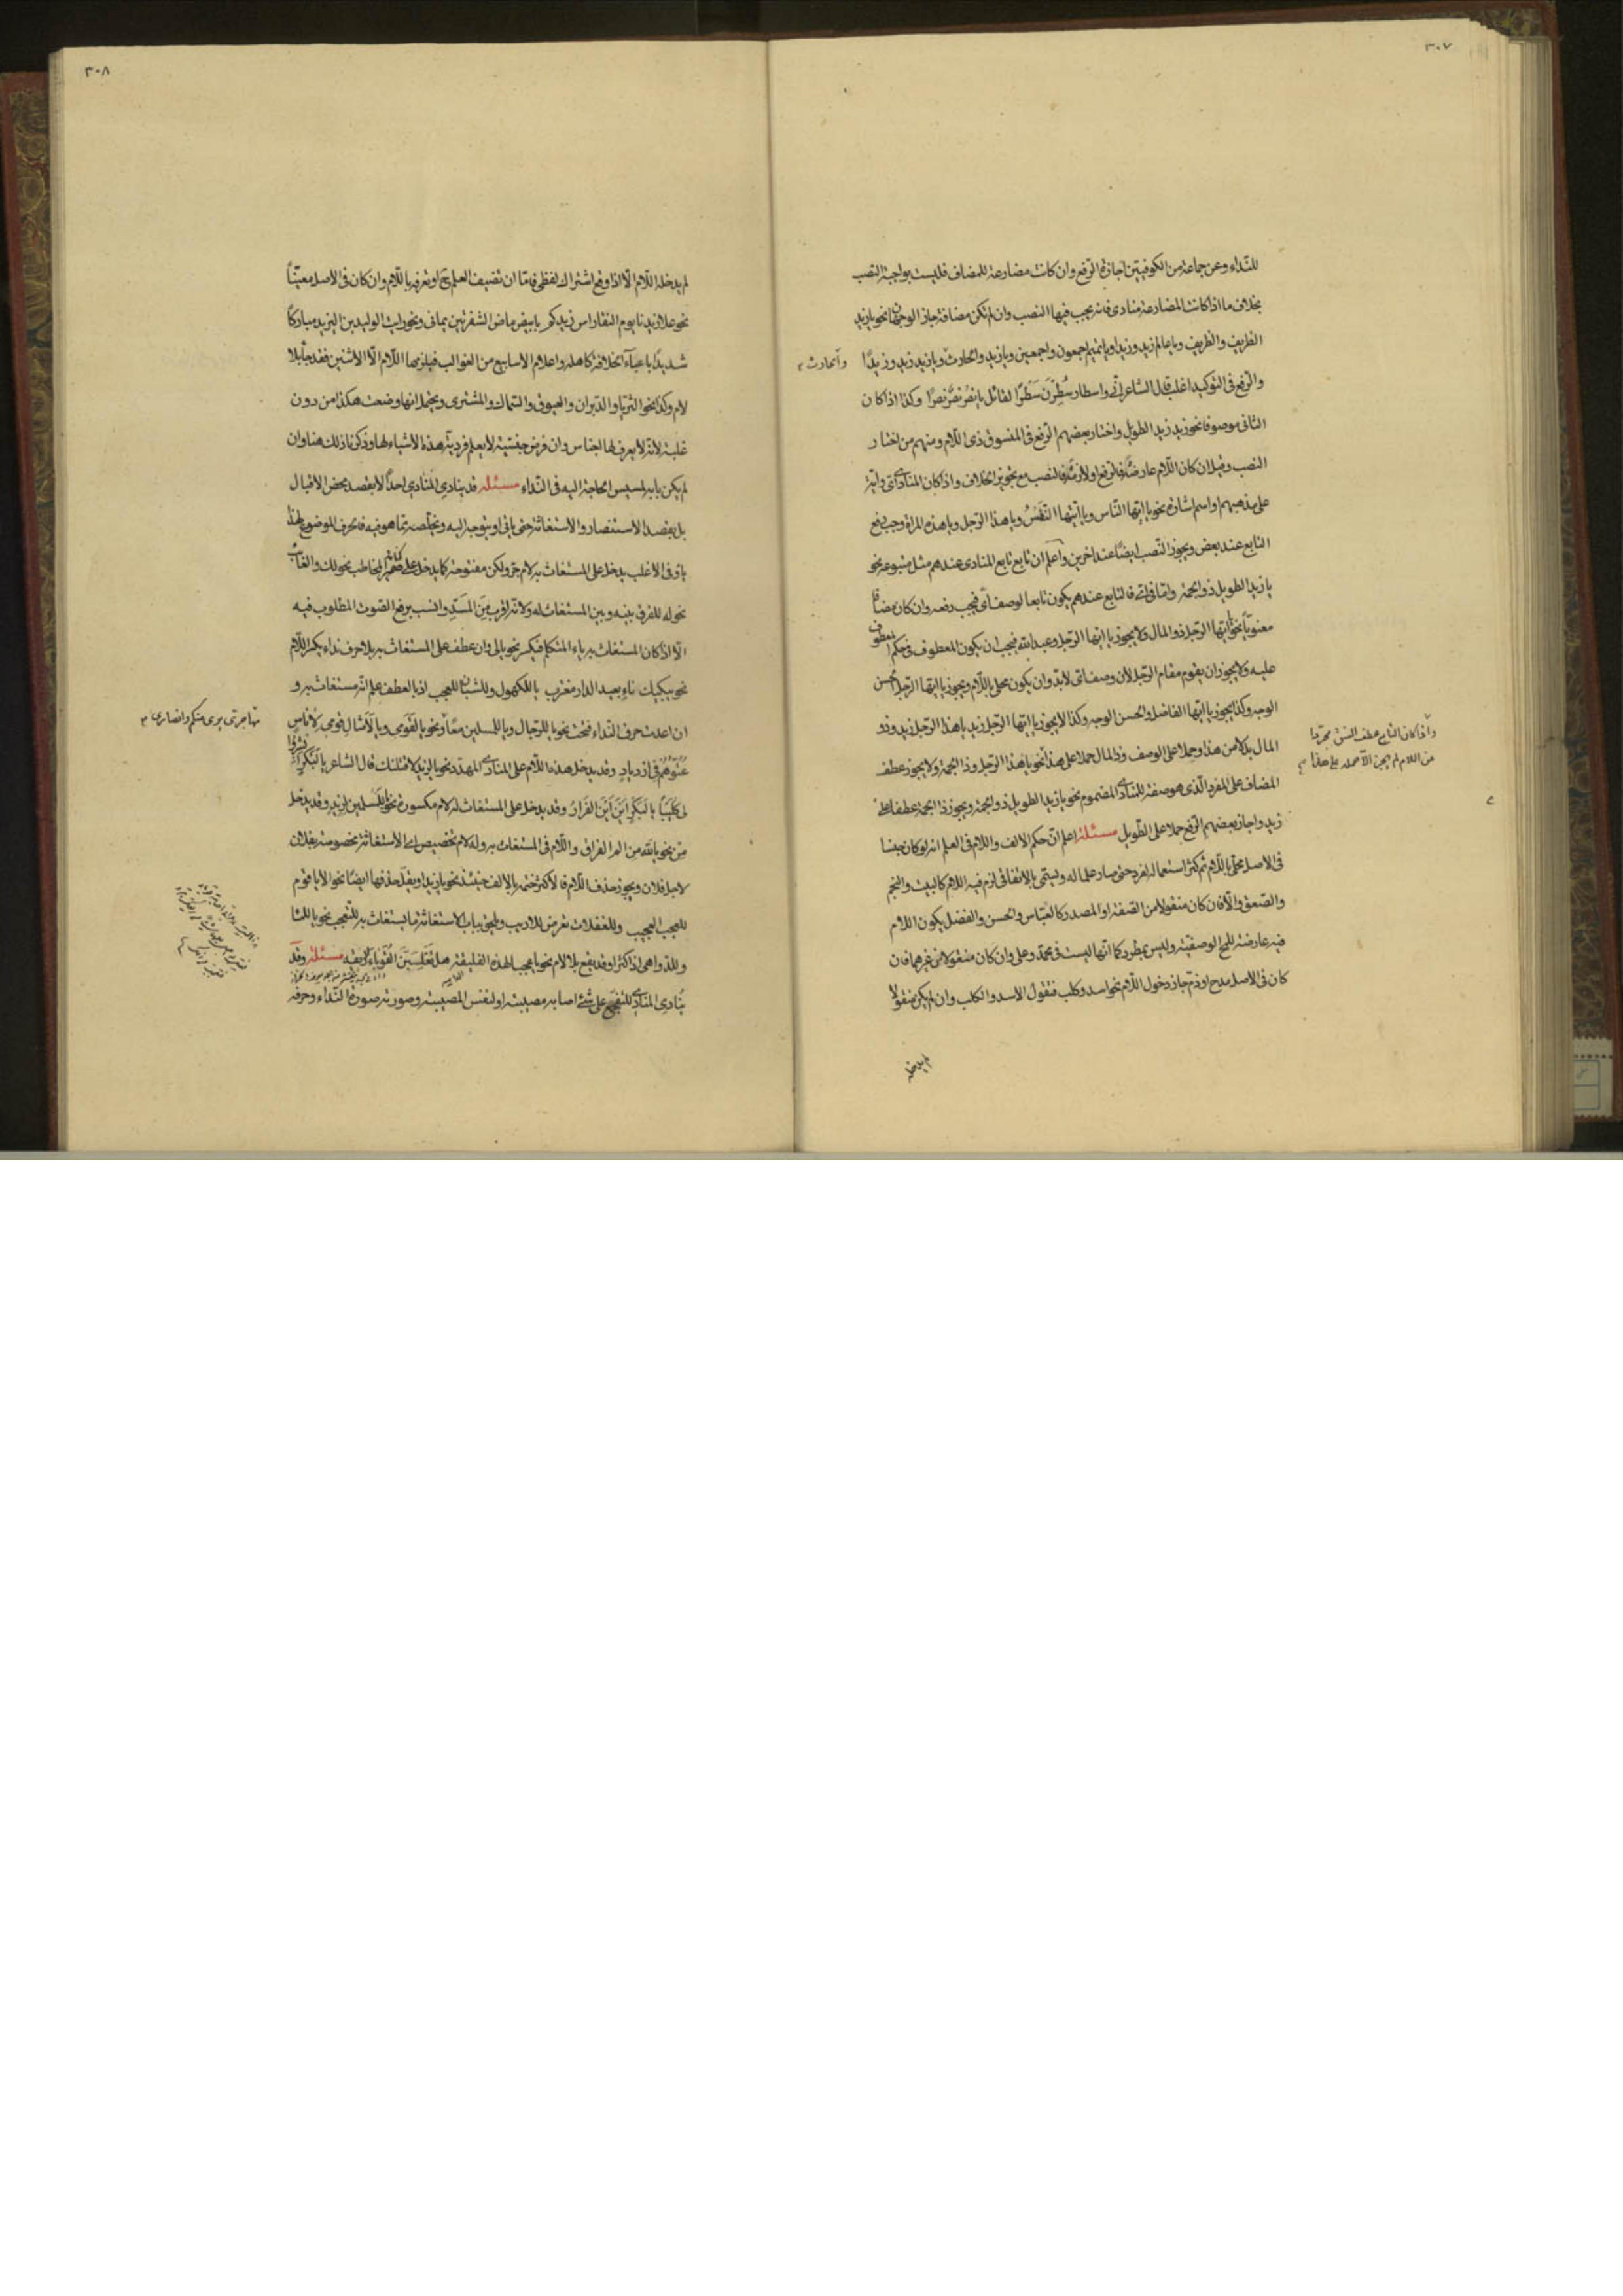 ٣٠٧
للنداء وعن جماعة من الكوفيين اجازة الرفع وان كانت مضارعة للمضاف فليست بواجبة النصب
بخلاف ما اذا كانت المضارعة منادى فانه يجب فيها النصب وان لم تكن مضافة جاز الوجهان نحو يا زيد
الظريف والظريف ويا عالم زيد وزيدا ويا تميم اجمعون واجمعين ويا زيد والحارث ويا زيد زيد وزيدًا
والحارث
والرفع في التوكيد اغلب قال الشاعر انّي واسطار سُطِرْنَ سَطْرًا لقائل يا نصرُ نصرٌ نصرًا وكذا اذا كان
الثاني موصوفا نحو زيد زيد الطويل واختار بعضهم الرفع في المنسوق ذي اللام ومنهم من اختار
النصب وقيل ان كان اللام عارضة فالرفع او لازمة فالنصب مع تجويز الخلاف واذا كان المنادى اي واية
على مذهبهم او اسم اشارة نحو يا ايها الناس ويا ايتها النفس ويا هذا الرجل ويا هذه المراة وجب رفع
التابع عند بعض ويجوز النصب ايضًا عند اخرين واعلم ان تابع تابع المنادى عندهم مثل متبوعه نحو
يا زيد الطويل ذو الجمة واما في اي فالتابع عندهم يكون تابعا لوصف اي فيجب رفعه وان كان مضافا
معنويا نحو يا ايها الرجل ذو المال ولا يجوز يا ايها الرجل وعبد الله فيجب ان يكون المعطوف في حكم المعطوف
عليه ولا يجوز ان يقوم مقام الرجل لان وصف اي لا بد وان يكون محلى باللام ويجوز يا ايها الرجل الحسن
الوجه وكذا يجوز يا ايها الفاضل والحسن الوجه وكذا لا يجوز يا ايها الرجل زيد يا هذا الرجل زيد وذو
المال بدلا من هذا وحملا على الوصف وذا المال حملا على هذا نحو يا هذا الرجل وذا الجمة ولا يجوز عطف
واذا كان التابع عطف النسق مجردا
من اللام لم يجز الا حمله على هذا
المضاف على المفرد الذي هو صفة للمنادى المضموم نحو يا زيد الطويل ذو الجمة ويجوز ذا الجمة عطفا على
زيد واجاز بعضهم الرفع حملا على الطويل مسئلة اعلم ان حكم الالف واللام في العلم انه لو كان جنسا
في الاصل محلى باللام ثم كثر استعماله لفرد حتى صار علما له ويسمى بالاتفاقي لزم فيه اللام كالبيت والنجم
والصعق والا فان كان منقولا من الصفة او المصدر كالعباس والحسن والفضل يكون اللام
فيه عارضة للمح الوصفية وليس بمطرد كما انها ليست في محمد وعلي وان كان منقولا من غيرهما فان
كان في الاصل مدح او ذم جاز دخول اللام نحو اسد وكلب فتقول الاسد والكلب وان لم يكن منقولا
لم يدخله
٣٠٨
لم يدخله اللام الا اذا وقع اشتراك لفظي فاما ان تضيف العلم ح او تعرفه باللام وان كان في الاصل معينًا
نحو علا زيدنا يوم النقا راس زيدكم بابيض ماض الشفرتين يمانى ونحو رايت الوليد بن اليزيد مباركًا
شديدًا باعباء الخلافة كاهله واعلام الاسابيع من الغوالب فيلزمها اللام الا الاثنين فقد جاء بلا
لام وكذا نحو الثريا والدبران والعيوق والسماك والمشترى ويحتمل انها وضعت هكذا من دون
غلبة لانه لا يعرف لها اجناس وان فرض جنسية لا يعلم فردية هذه الاشياء لها وذكرنا ذلك هنا وان
لم يكن بابه لمسيس الحاجة اليه في النداء مسئلة قد ينادي المنادي احدًا لا بقصد محض الاقبال
بل بقصد الاستنصار والاستغاثة حتى ياتي او يتوجه اليه ويخلصه مما هو فيه فالحرف الموضوع لهذا
يا وفي الاغلب يدخل على المستغاث به لام جر ولكن مفتوحة كما يدخل على ضمير المخاطب نحو لك والغائب
نحو له للفرق بينه وبين المستغاث له ولانه اقرب من المسد وانسب برفع الصوت المطلوب فيه
الا اذا كان المستغاث به ياء المتكلم فيكسر نحو يا لي وان عطف على المستغاث به بلا حرف نداء يكسر اللام
نحو يبكيك ناءٍ بعيد الدار مغترب يا للكهول وللشبان للعجب اذ بالعطف علم انه مستغاث به و
ان اعدت حرف النداء فتحت نحو يا للرجال ويا للمسلمين معًا ونحو يا لقومي ويا لامثال قومي لاناسٍ
عتوّهم في ازديادٍ وقد يدخل هذه اللام على المنادى المهدد نحو يا لزيد لاقتلنك قال الشاعر يا لبكر انشروا
لي كليبًا يا لبكر اين اين الفرار وقد يدخل على المستغاث له لام مكسورة نحو يا للمسلمين لزيد وقد يدخل
من نحو يا لله من الم الفراق واللام في المستغاث به وله لام تخصيص اي الاستغاثة مخصوصة بفلان
لاجل فلان ويجوز حذف اللام فالاكثر ختمه بالالف حينئذ نحو يا زيدا ويقل حذفها ايضًا نحو الا يا قوم
للعجب العجيب وللغفلات تعرض للاريب ويلحق بباب الاستغاثة ما يستغاث به للتعجب نحو يا للماء
وللدواهي اذا كثرا وقد يقع بلا لام نحو يا عجبا لهذه الفليقة هل تغلبن القوباء الريقه مسئلة وقد
ينادي المنادى للتفجع على شئ اصابه مصيبته او لنفس المصيبة وصورته صورة النداء وحرفه